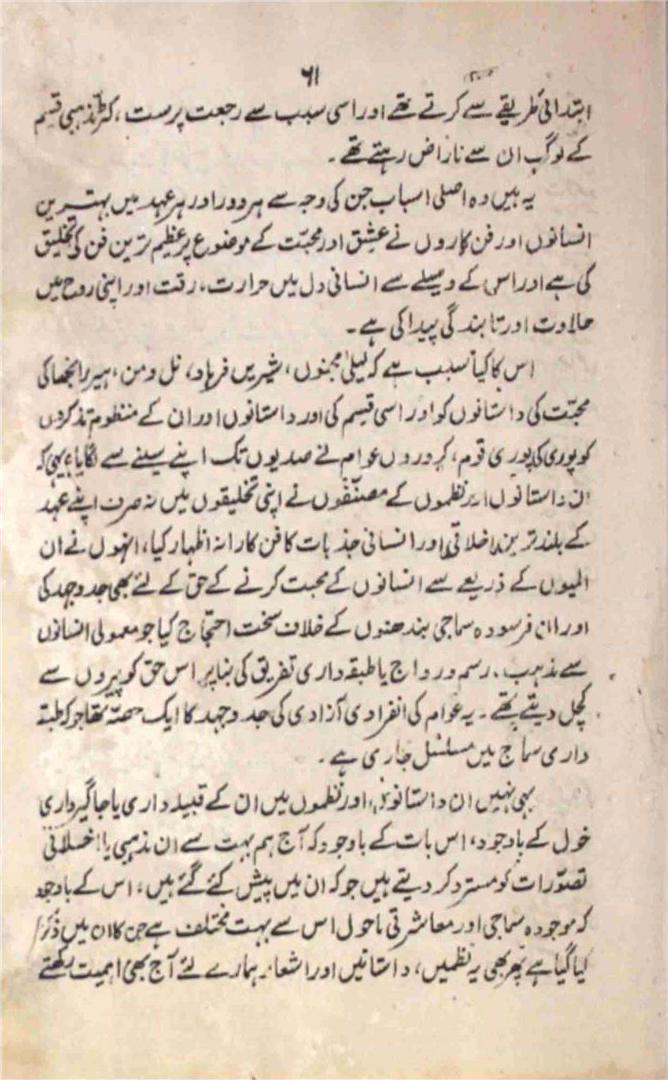 ۶۱
ابتدائی طریقے سے کرتے تھے اور اسی سبب سے رجعت پرست، کٹر مذہبی قسم
کے لوگ ان سے ناراض رہتے تھے۔
یہ ہیں وہ اصلی اسباب جن کی وجہ سے ہر دور اور ہر عہد میں بہترین
انسانوں اور فن کاروں نے عشق اور محبّت کے موضوع پر عظیم ترین فن کی تخلیق
کی ہے اور اس کے وسیلے سے انسانی دل میں حرارت، رقت اور اپنی روح میں
حلاوت اور تابندگی پیدا کی ہے۔
اس کا کیا سبب ہے کہ لیلیٰ مجنوں، شیریں فرہاد، نل و من، ہیر رانجھا کی
محبّت کی داستانوں کو اور اسی قسم کی اور داستانوں اور ان کے منظوم تذکروں
کو پوری کی پوری قوم، کروروں عوام نے صدیوں تک اپنے سینے سے لگایا، یہی کہ
ان داستانوں اور نظموں کے مصنّفوں نے اپنی تخلیقوں میں نہ صرف اپنے عہد
کے بلند ترین اخلاقی اور انسانی جذبات کا فن کارانہ اظہار کیا، انہوں نے ان
المیوں کے ذریعے سے انسانوں کے محبت کرنے کے حق کے لئے بھی جدوجہد کی
اور ان فرسودہ سماجی بندھنوں کے خلاف سخت احتجاج کیا جو معمولی انسانوں
سے مذہب، رسم و رواج یا طبقہ داری تفریق کی بنا پر اس حق کو پیروں سے
کچل دیتے تھے۔ یہ عوام کی انفرادی آزادی کی جدوجہد کا ایک حصّہ تھا جو کہ طبقہ
داری سماج میں مسلسل جاری ہے۔
یہی نہیں ان داستانوں اور نظموں میں ان کے قبیلہ داری یا جاگیرداری
خول کے باوجود، اس بات کے باوجود کہ آج ہم بہت سے ان مذہبی یا اخلاقی
تصوّرات کو مسترد کر دیتے ہیں جو کہ ان میں پیش کئے گئے ہیں، اس کے باوجود
کہ موجودہ سماجی اور معاشرتی ماحول اس سے بہت مختلف ہے جن کا ان میں ذکر
کیا گیا ہے پھر بھی یہ نظمیں، داستانیں اور اشعار ہمارے لئے آج بھی اہمیت رکھتے